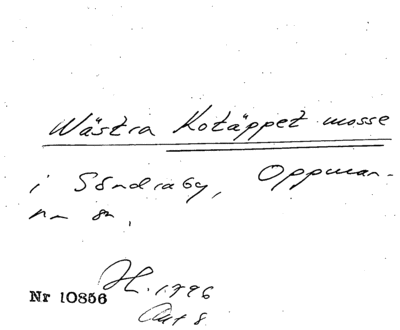 Wästra Kotäppet mosse
i Söndraby, Oppman-
na sn.
H. 1796
Akt 8
Nr 10856